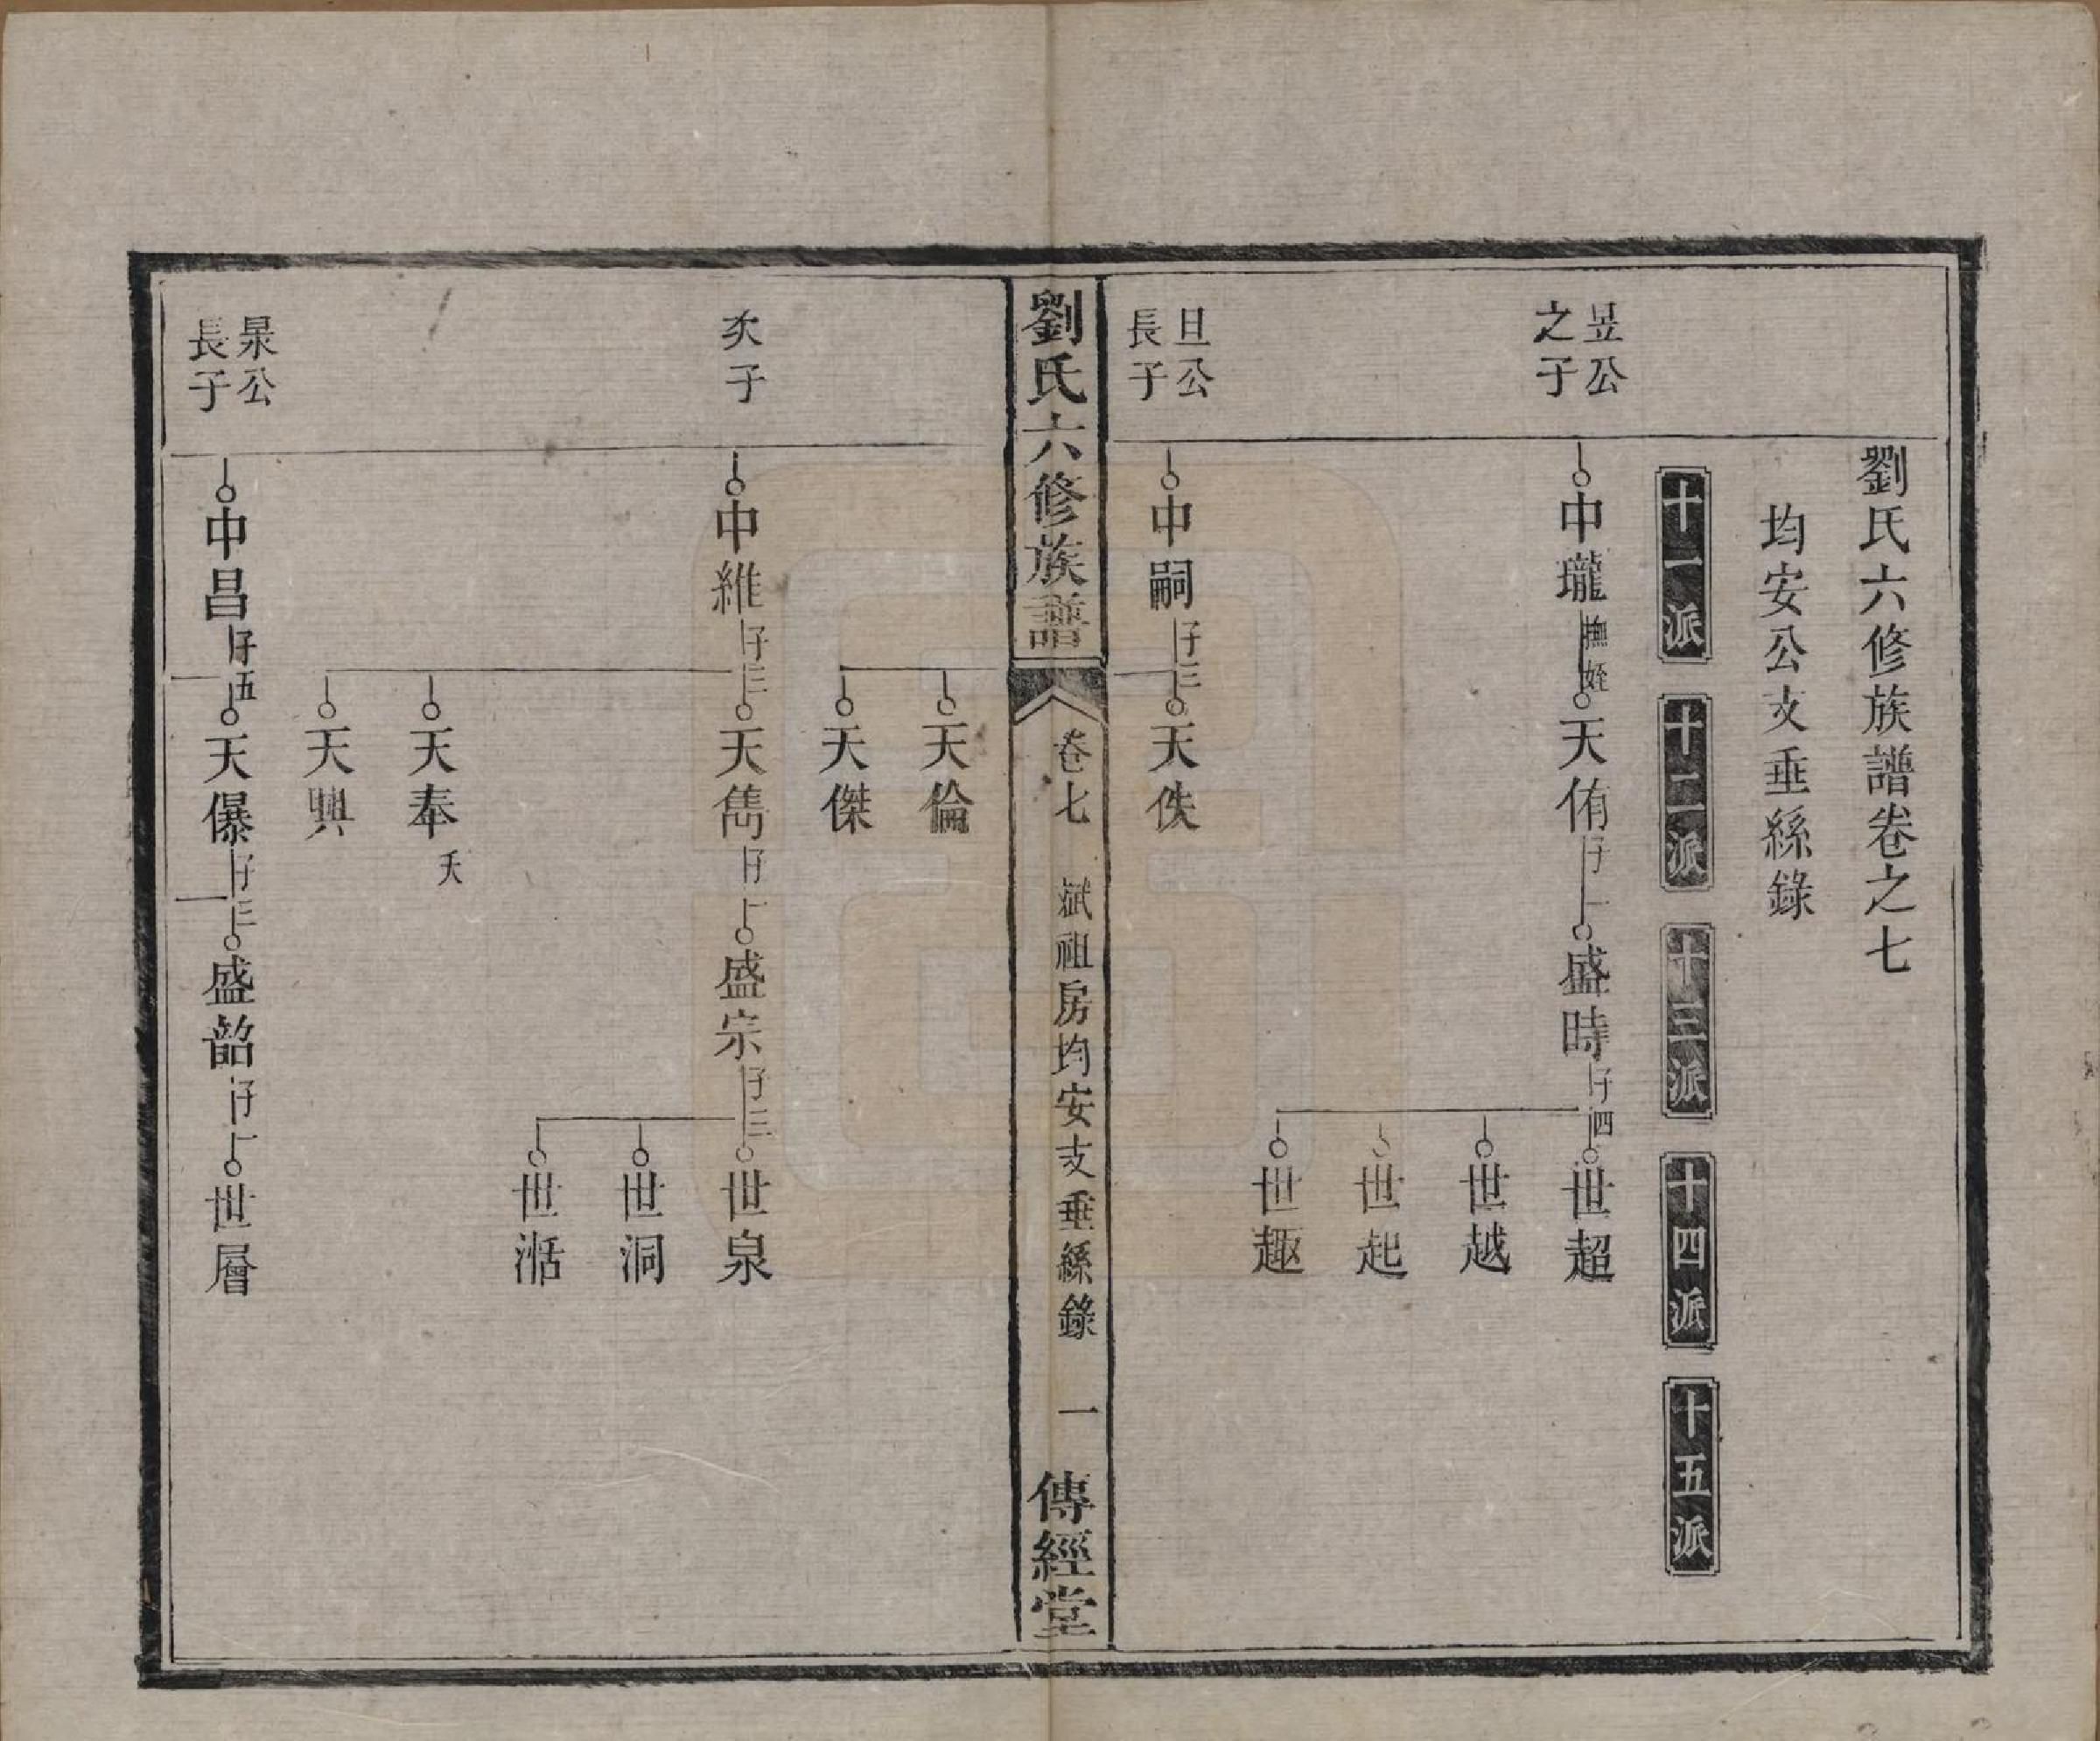 劉氏六修族譜卷之七
均安公支垂絲錄
十一派
十二派
十三派
十四派
十五派
昱公
之子
中瓏
撫姪
天侑
仔一
盛時
仔四
世超
世越
世起
世趣
旦公
長子
中嗣
仔三
天佚
劉氏六修族譜
卷七
斌祖房均安支垂絲錄
一
傳經堂
天倫
天傑
次子
中維
仔三
天雋
仔一
盛宗
仔三
世泉
世洞
世湉
天奉
夭
天興
杲公
長子
中昌
仔五
天㬥
仔三
盛韶
仔一
世層